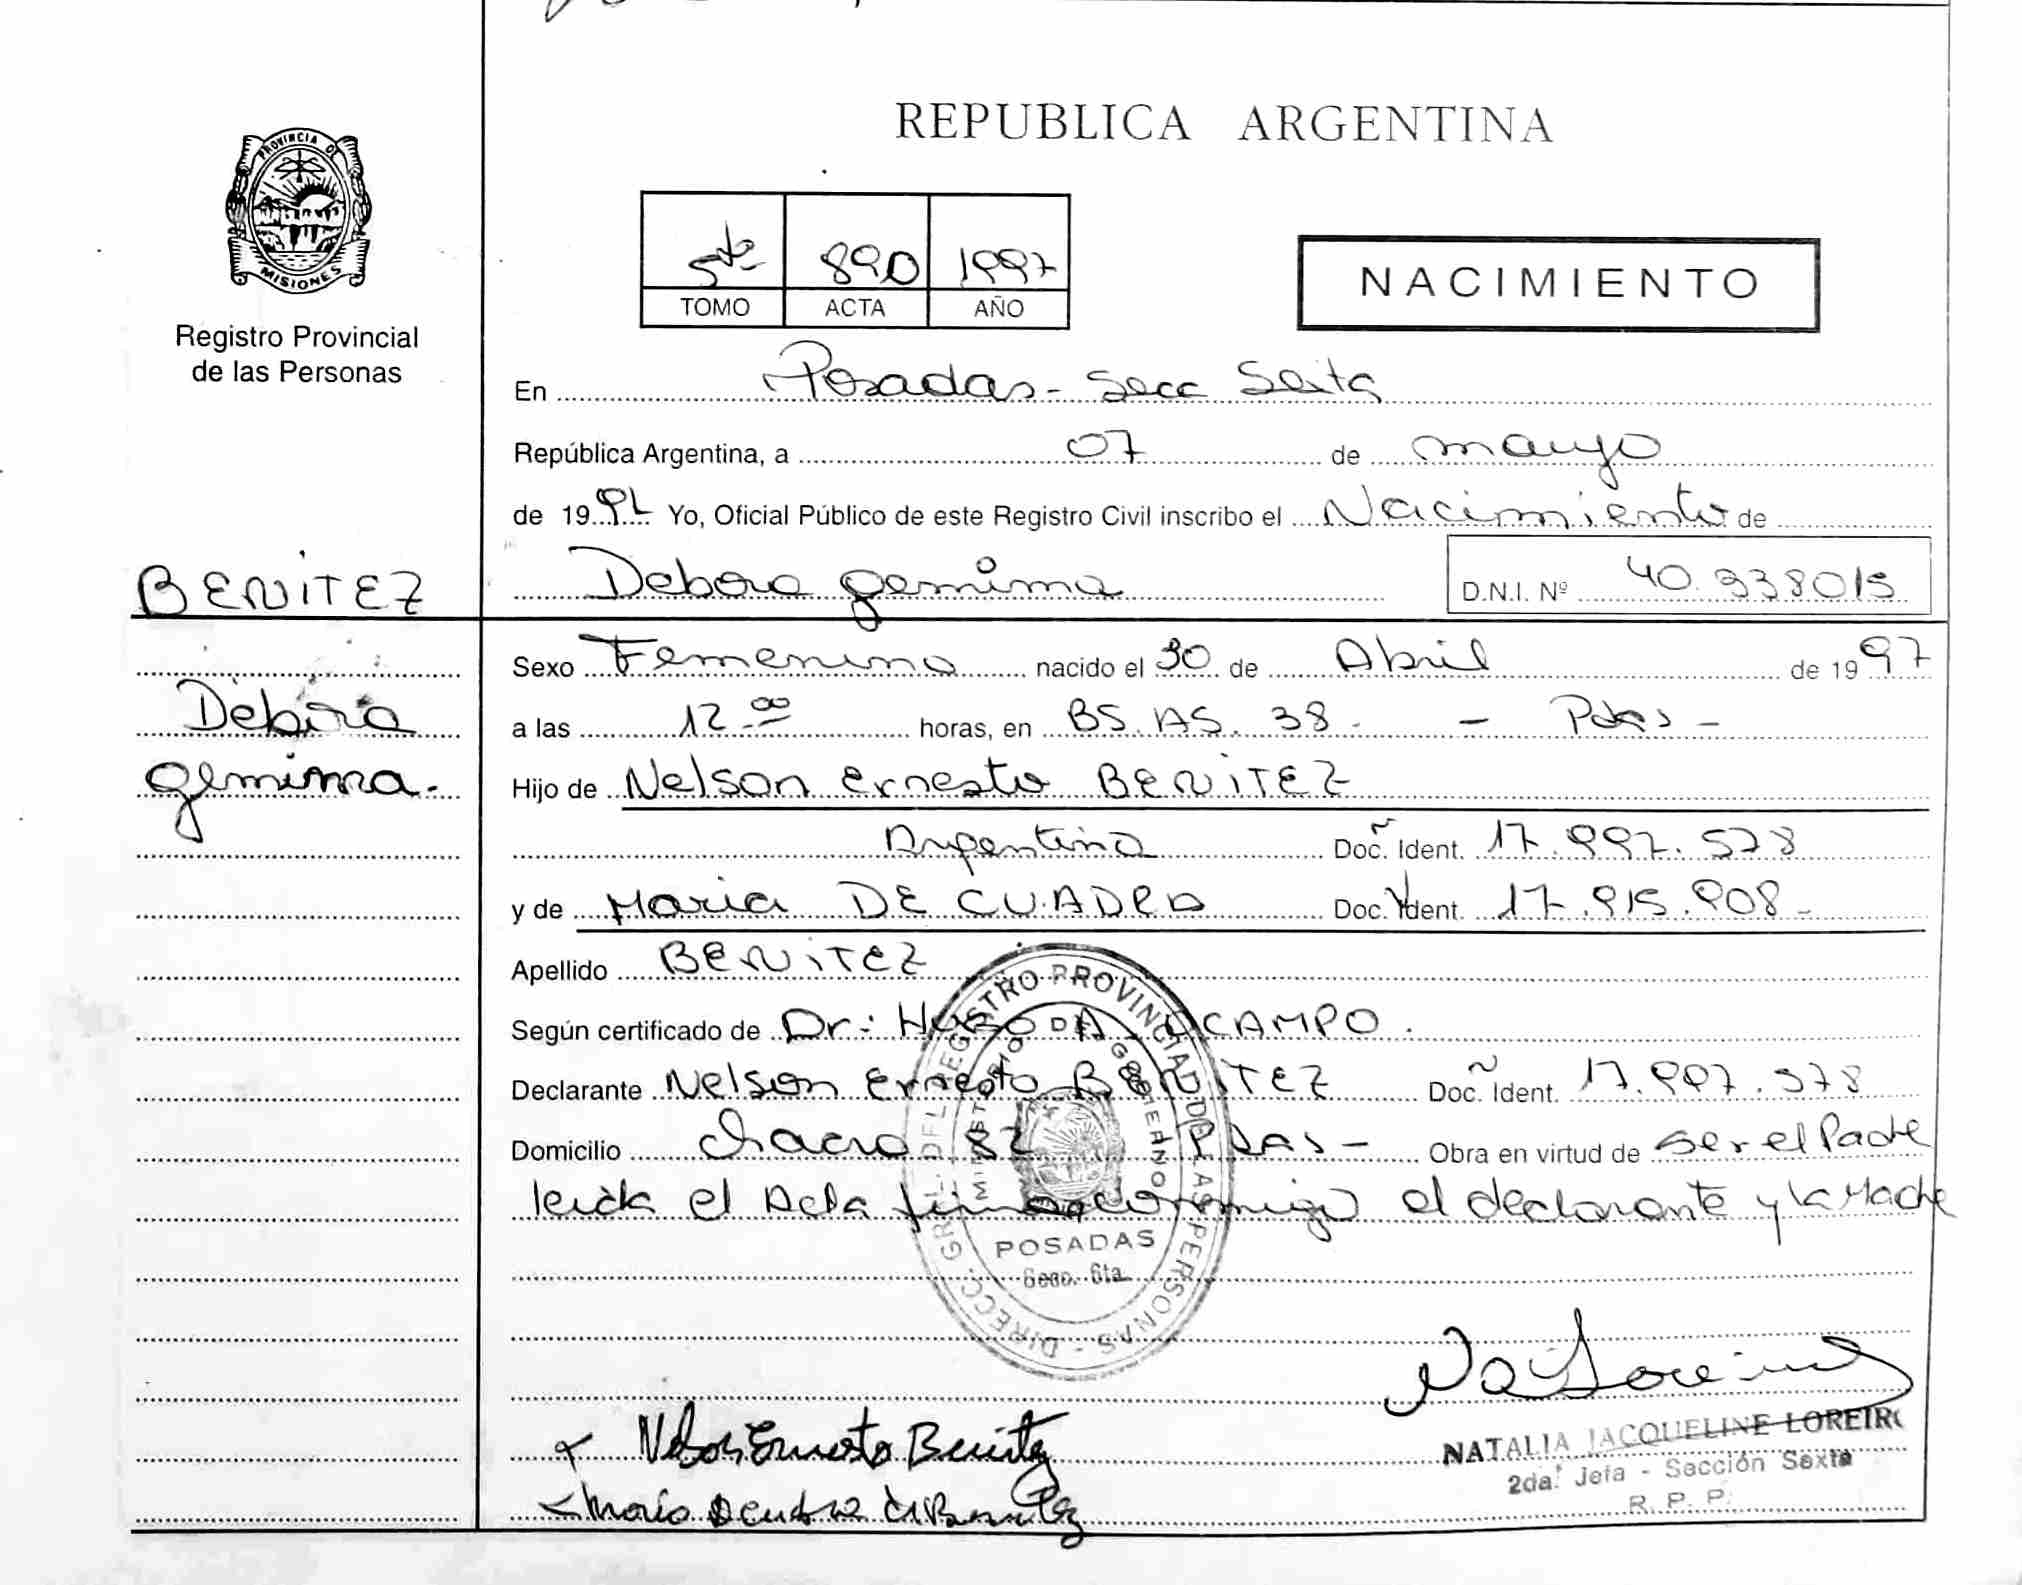 REPUBLICA ARGENTINA
PROVINCIA DE
MISIONES
Registro Provincial
de las Personas
5to 890 1997
TOMO ACTA AÑO
NACIMIENTO
En Posadas - Secc Sexta
República Argentina, a 07 de mayo
de 1997 Yo, Oficial Público de este Registro Civil inscribo el Nacimiento de
BENITEZ
Debora gemima D.N.I. Nº 40.938015
Sexo Femenino nacido el 30 de Abril de 1997
Debora
a las 12.00 horas, en BS.AS. 38. - Pdas -
gemima.
Hijo de Nelson Ernesto BENITEZ
Argentina Doc. Ident. 17.997.578
y de Maria DE CUADRO Doc. Ident. 17.915.908-
Apellido BENITEZ
Según certificado de Dr. Hugo A. OCAMPO.
Declarante Nelson Ernesto BENITEZ Doc. Ident. 17.997.578
Domicilio chacra 82 PDAS - Obra en virtud de ser el Padre
leida el Acta firma conmigo el declarante y la Madre
DIRECC. GRL. DEL REGISTRO PROVINCIAL DE LAS PERSONAS
MINISTERIO DE GOBIERNO
POSADAS
Secc. 6ta.
Nelson Ernesto Benitez
NATALIA JACQUELINE LOREIRO
2da. Jefa - Sección Sexta
R. P. P.
Maria